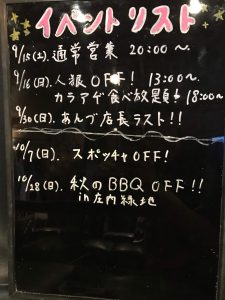 イベントリスト
9/15(土). 通常営業 20:00〜.
9/16(日). 人狼OFF! 13:00〜.
カラアゲ食べ放題! 18:00〜
9/30(日). あんづ店長ラスト!!
10/7(日). スポッチャOFF!
10/28(日). 秋のBBQ OFF!!
in 庄内緑地